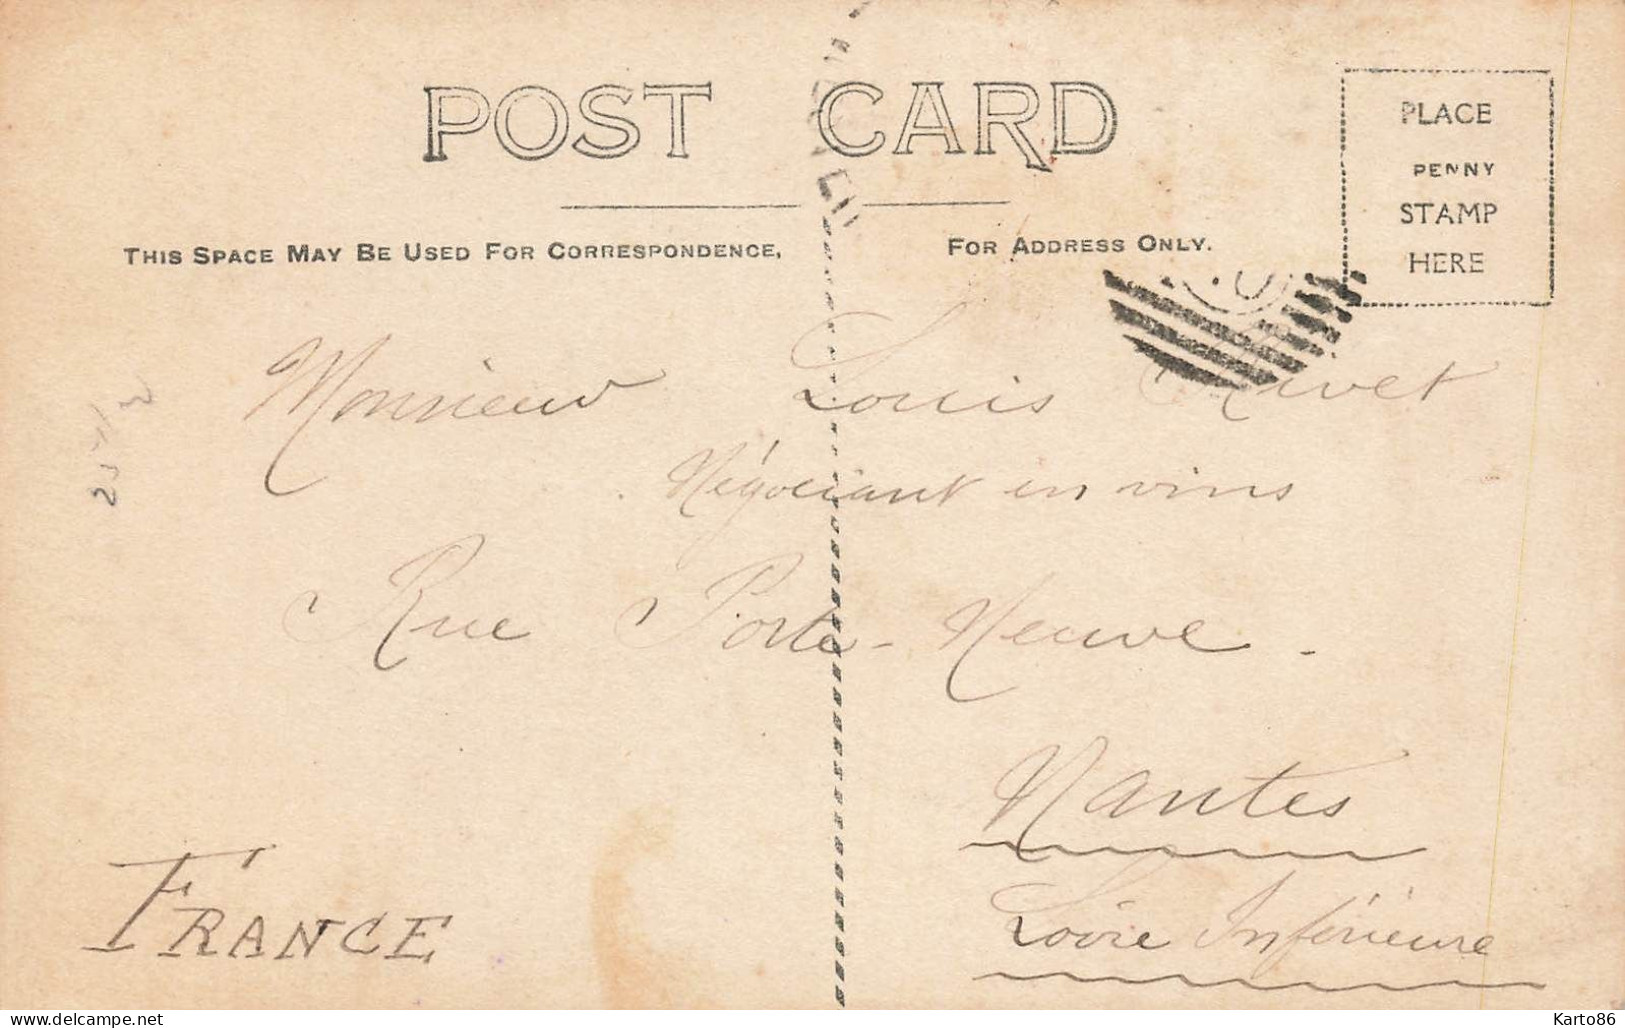 POST CARD
PLACE
PENNY
STAMP
HERE
THIS SPACE MAY BE USED FOR CORRESPONDENCE,
FOR ADDRESS ONLY.
Monsieur Louis Rivet
Négociant en vins
Rue Porte-Neuve.
Nantes
Loire Inférieure
FRANCE
delcampe.net
Karto86